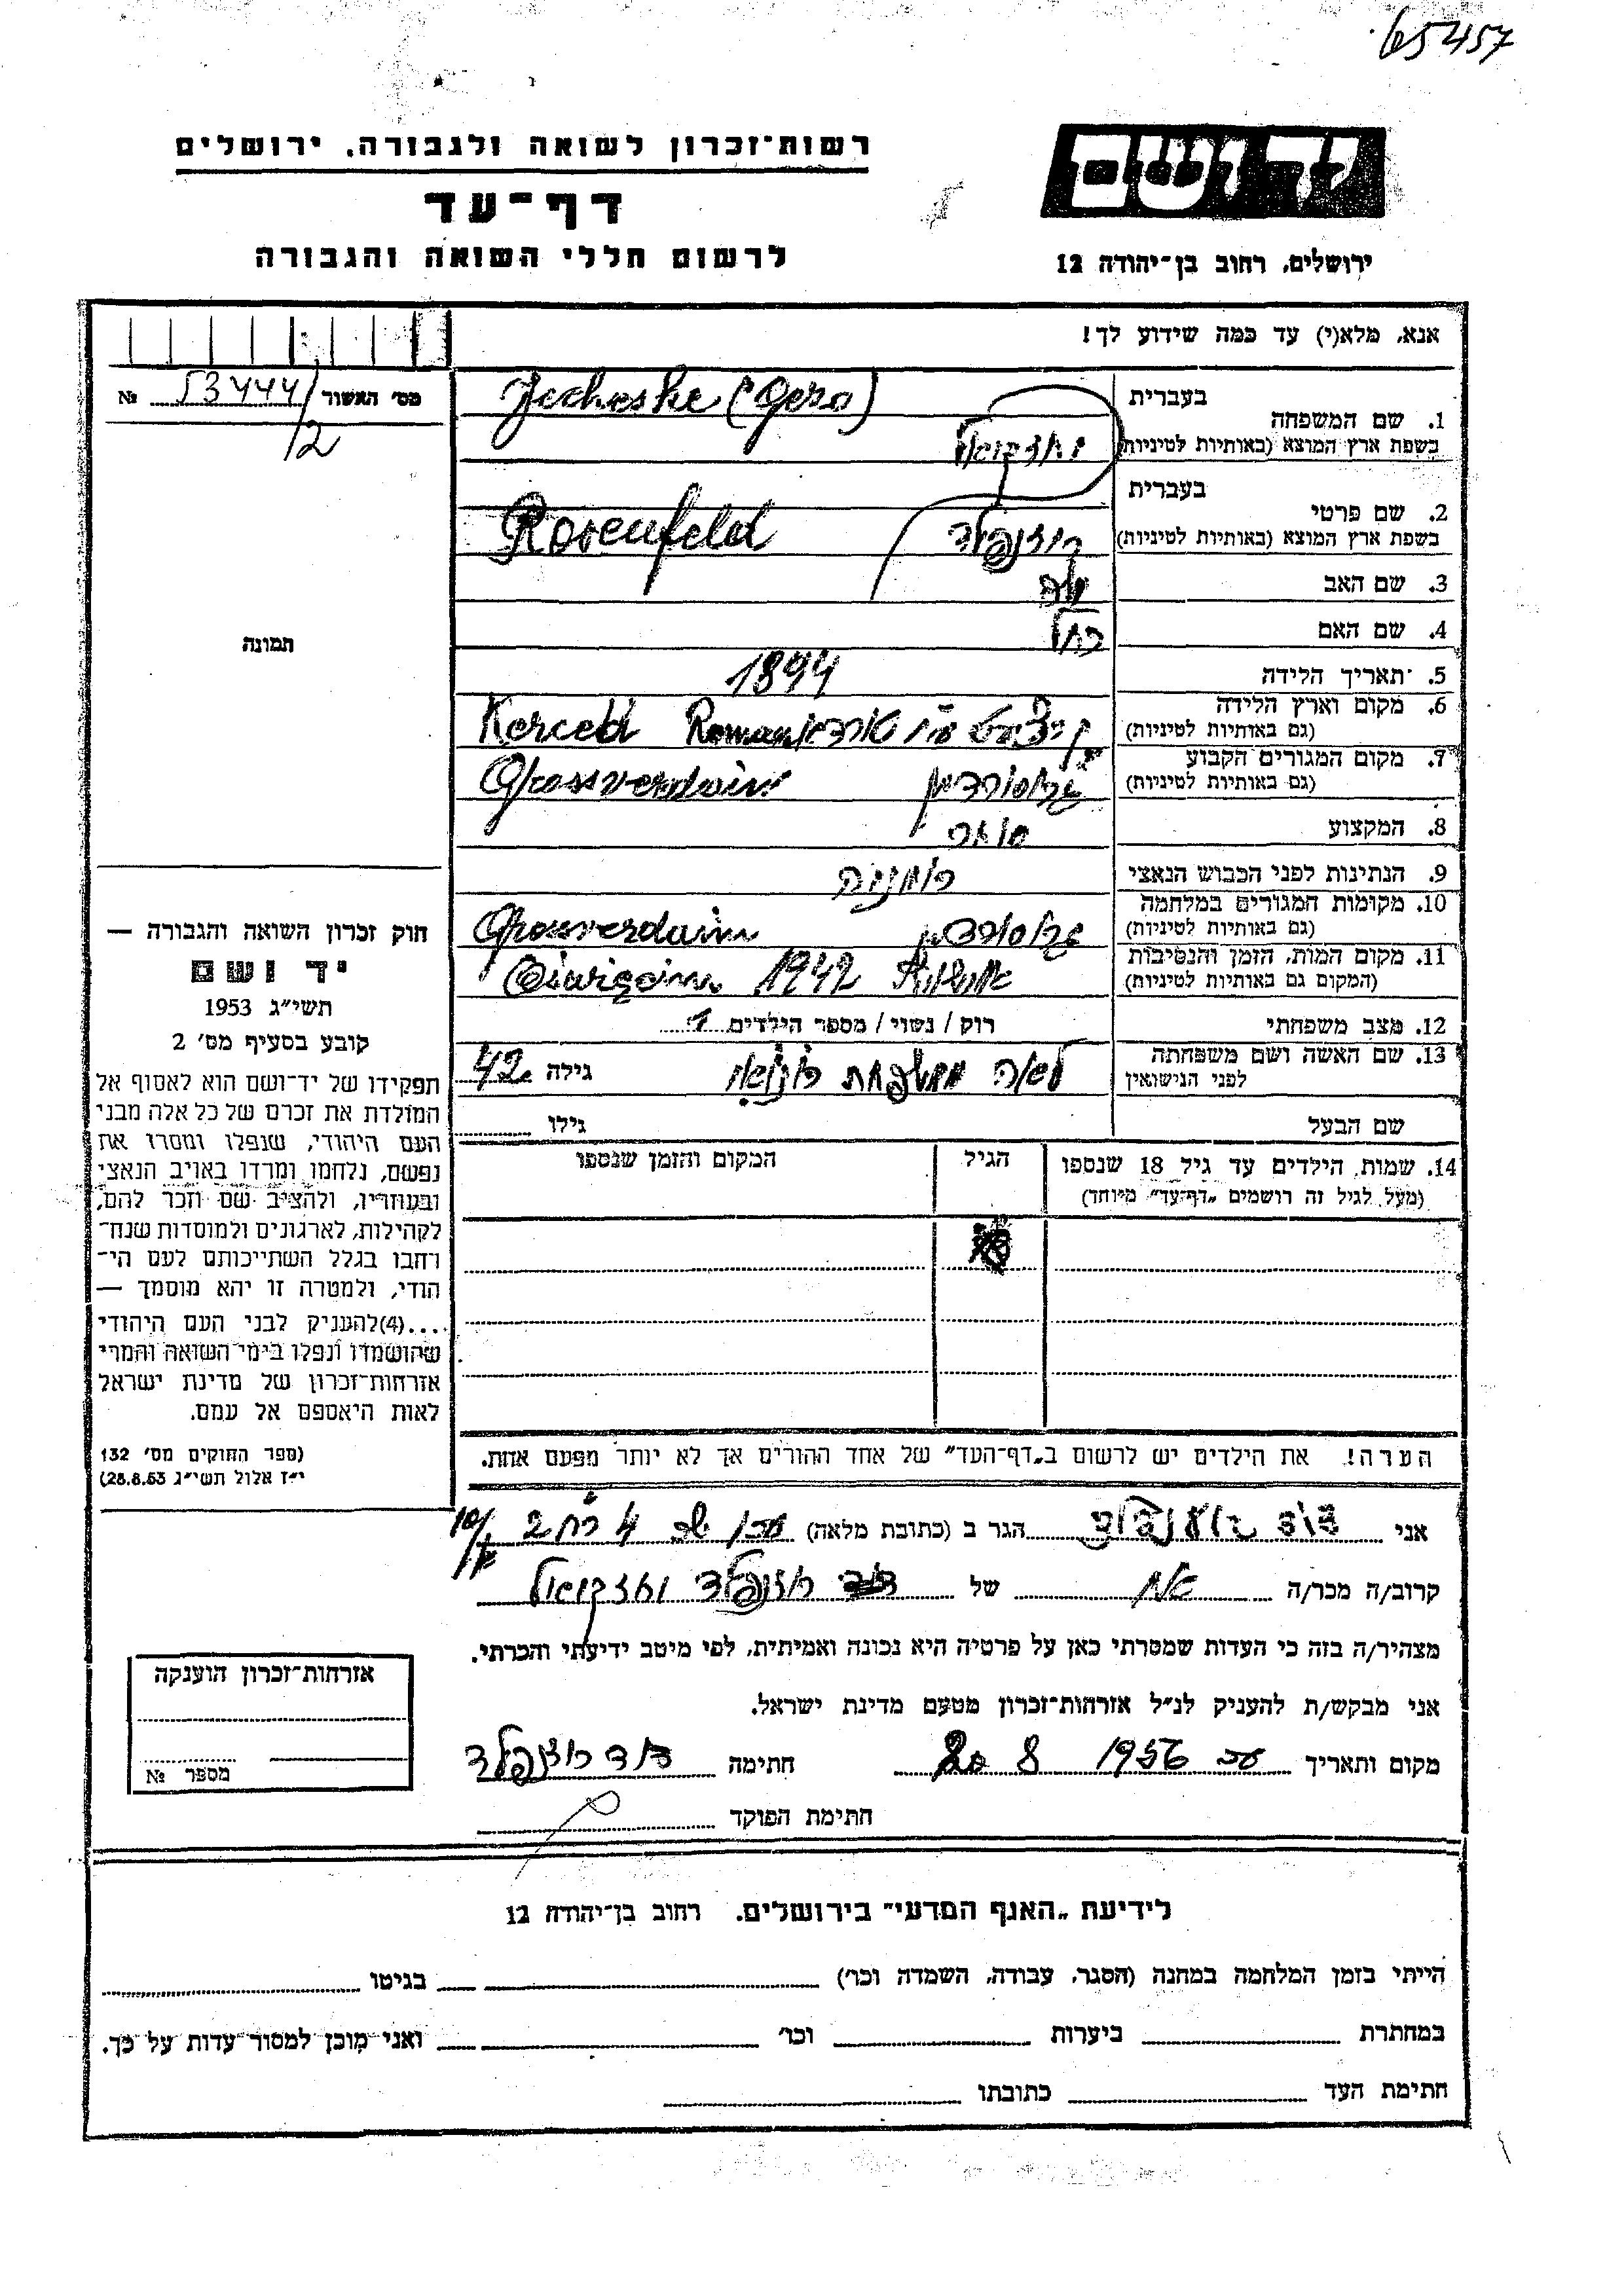 65457
רשות־זכרון לשואה ולגבורה, ירושלים
דף־עד
לרשום חללי השואה והגבורה
ירושלים, רחוב בן־יהודה 12
אנא, מלא(י) עד כמה שידוע לך!
מס' האשור 53444/2 №
בעברית
1. שם המשפחה
Jecheske (Gero)
בשפת ארץ המוצא (באותיות לטיניות)
בעברית
2. שם פרטי
Rosenfeld
בשפת ארץ המוצא (באותיות לטיניות) רוזנפלד
3. שם האב
4. שם האם רחל
5. תאריך הלידה 1894
6. מקום וארץ הלידה
(גם באותיות לטיניות)
7. מקום המגורים הקבוע
(גם באותיות לטיניות) גרוסורדיין Grossverdain
8. המקצוע סוחר
9. הנתינות לפני הכבוש הנאצי רומניה
10. מקומות המגורים במלחמה
(גם באותיות לטיניות) גרוסורדיין Grosverdain
11. מקום המות, הזמן והנסיבות
(המקום גם באותיות לטיניות) 1942
12. מצב משפחתי רוק / נשוי / מספר הילדים
13. שם האשה ושם משפחתה
לפני הנישואין לאה ממשפחת גילה 42
שם הבעל גילו
14. שמות הילדים עד גיל 18 שנספו
(מעל לגיל זה רושמים „דף־עד" מיוחד)
הגיל
המקום והזמן שנספו
הערה! את הילדים יש לרשום ב„דף־העד" של אחד ההורים אך לא יותר מפעם אחת.
תמונה
חוק זכרון השואה והגבורה —
יד ושם
תשי"ג 1953
קובע בסעיף מס' 2
תפקידו של יד־ושם הוא לאסוף אל
המולדת את זכרם של כל אלה מבני
העם היהודי, שנפלו ומסרו את
נפשם, נלחמו ומרדו באויב הנאצי
ובעוזריו, ולהציב שם וזכר להם,
לקהילות, לארגונים ולמוסדות שנח־
רבו בגלל השתייכותם לעם הי־
הודי, ולמטרה זו יהא מוסמך —
....(4)להעניק לבני העם היהודי
שהושמדו ונפלו בימי השואה והמרי
אזרחות־זכרון של מדינת ישראל
לאות היאספם אל עמם.
(ספר החוקים מס' 132
י"ז אלול תשי"ג 28.8.53)
אני דוד רוזנפלד הגר ב (כתובת מלאה)
קרוב/ה מכר/ה אח של רוזנפלד
מצהיר/ה בזה כי העדות שמסרתי כאן על פרטיה היא נכונה ואמיתית, לפי מיטב ידיעתי והכרתי.
אני מבקש/ת להעניק לנ"ל אזרחות־זכרון מטעם מדינת ישראל.
מקום ותאריך 1956 8 חתימה דוד רוזנפלד
חתימת הפוקד
אזרחות־זכרון הוענקה
מספר №
לידיעת „האגף המדעי" בירושלים, רחוב בן־יהודה 12
הייתי בזמן המלחמה במחנה (הסגר, עבודה, השמדה וכו') בגיטו
במחתרת ביערות וכו' ואני מוכן למסור עדות על כך.
חתימת העד כתובתו